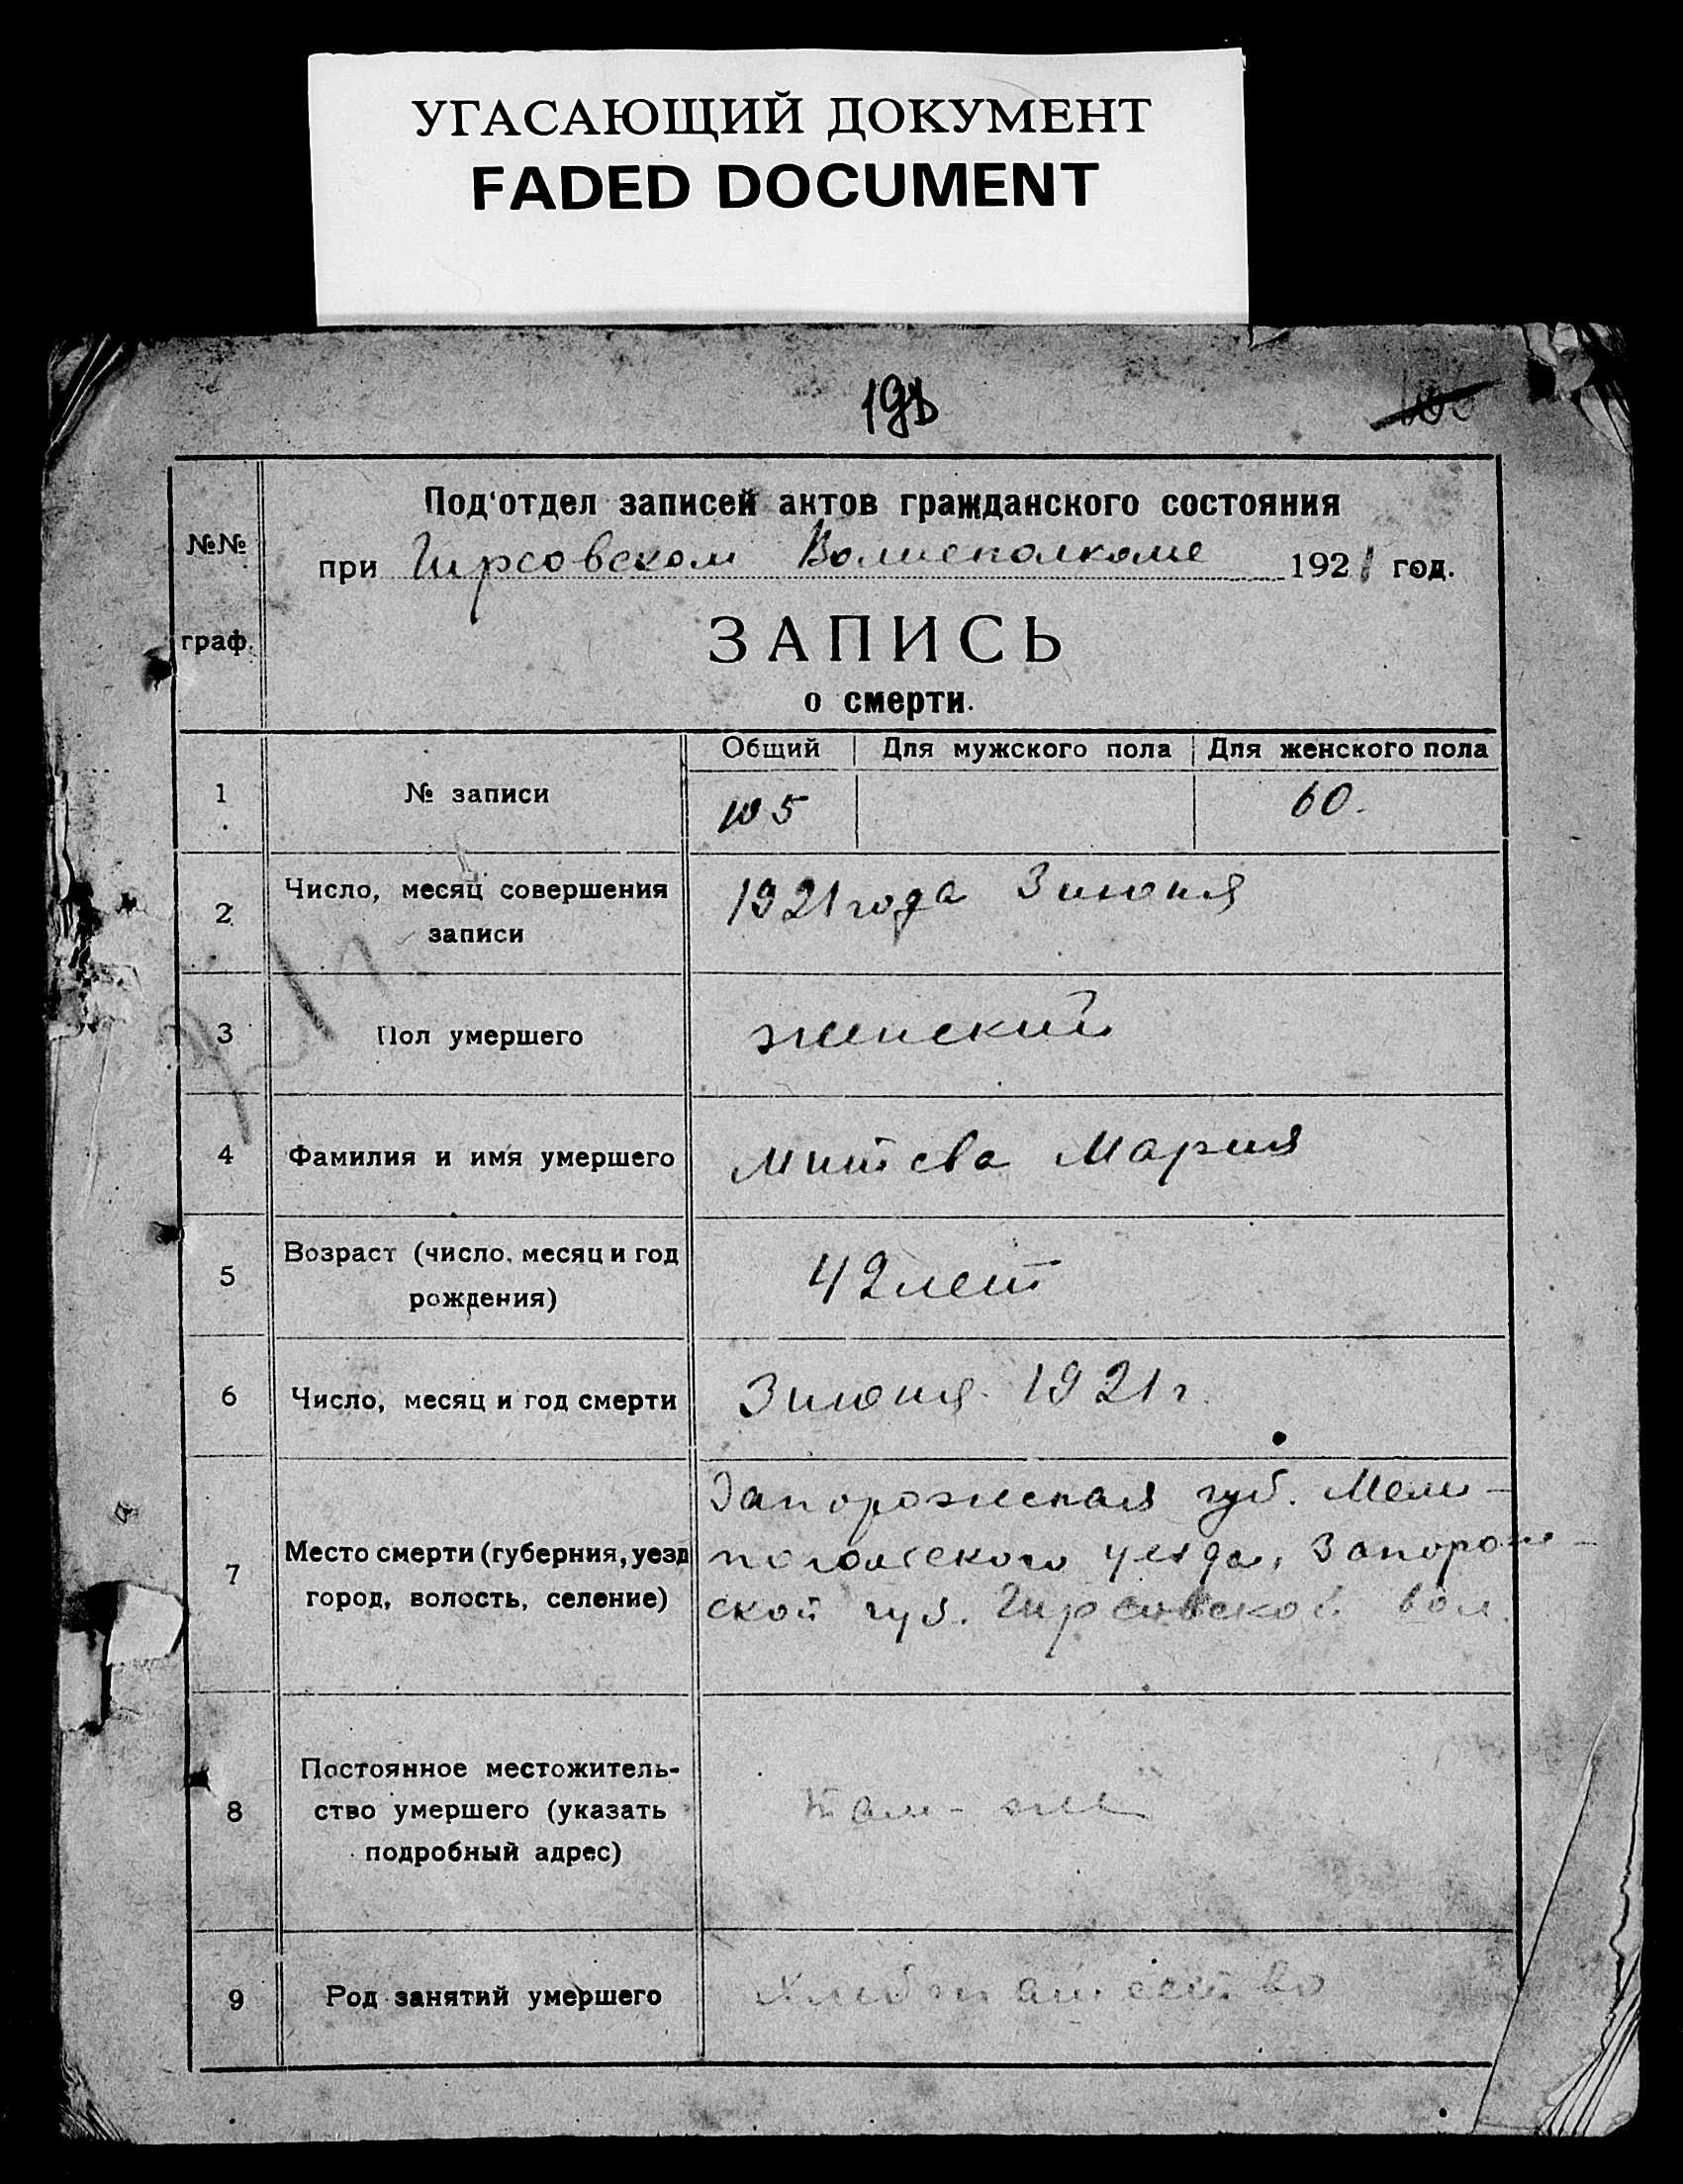 УГАСАЮЩИЙ ДОКУМЕНТ
FADED DOCUMENT
Под'отдел записей актов гражданского состояния
№№
при Гирсовском Волисполкоме 1921 год.
граф.
ЗАПИСЬ
о смерти.
Общий Для мужского пола Для женского пола
1 № записи 105 60.
2 Число, месяц совершения
записи
1921 года 3 июня
3 Пол умершего женский
4 Фамилия и имя умершего Митева Мария
5 Возраст (число, месяц и год
рождения)
42 лет
6 Число, месяц и год смерти 3 июня 1921 г.
7 Место смерти (губерния, уезд
город, волость, селение)
Запорожская губ. Мели-
топольского уезда, Запорож-
ской губ. Гирсовской вол.
8 Постоянное местожитель-
ство умершего (указать
подробный адрес)
там-же
9 Род занятий умершего